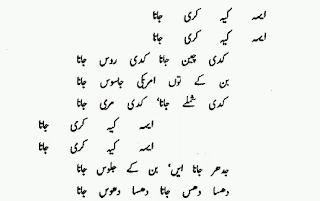 ایہہ کیہ کری جانا
ایہہ کیہ کری جانا
کدی چین جانا کدی روس جانا
بن کے توں امریکی جاسوس جانا
کدی شملے جانا، کدی مری جانا
ایہہ کیہ کری جانا
ایہہ کیہ کری جانا
جدھر جانا ایں، بن کے جلوس جانا
دھسا دھس جانا دھسا دھوس جانا